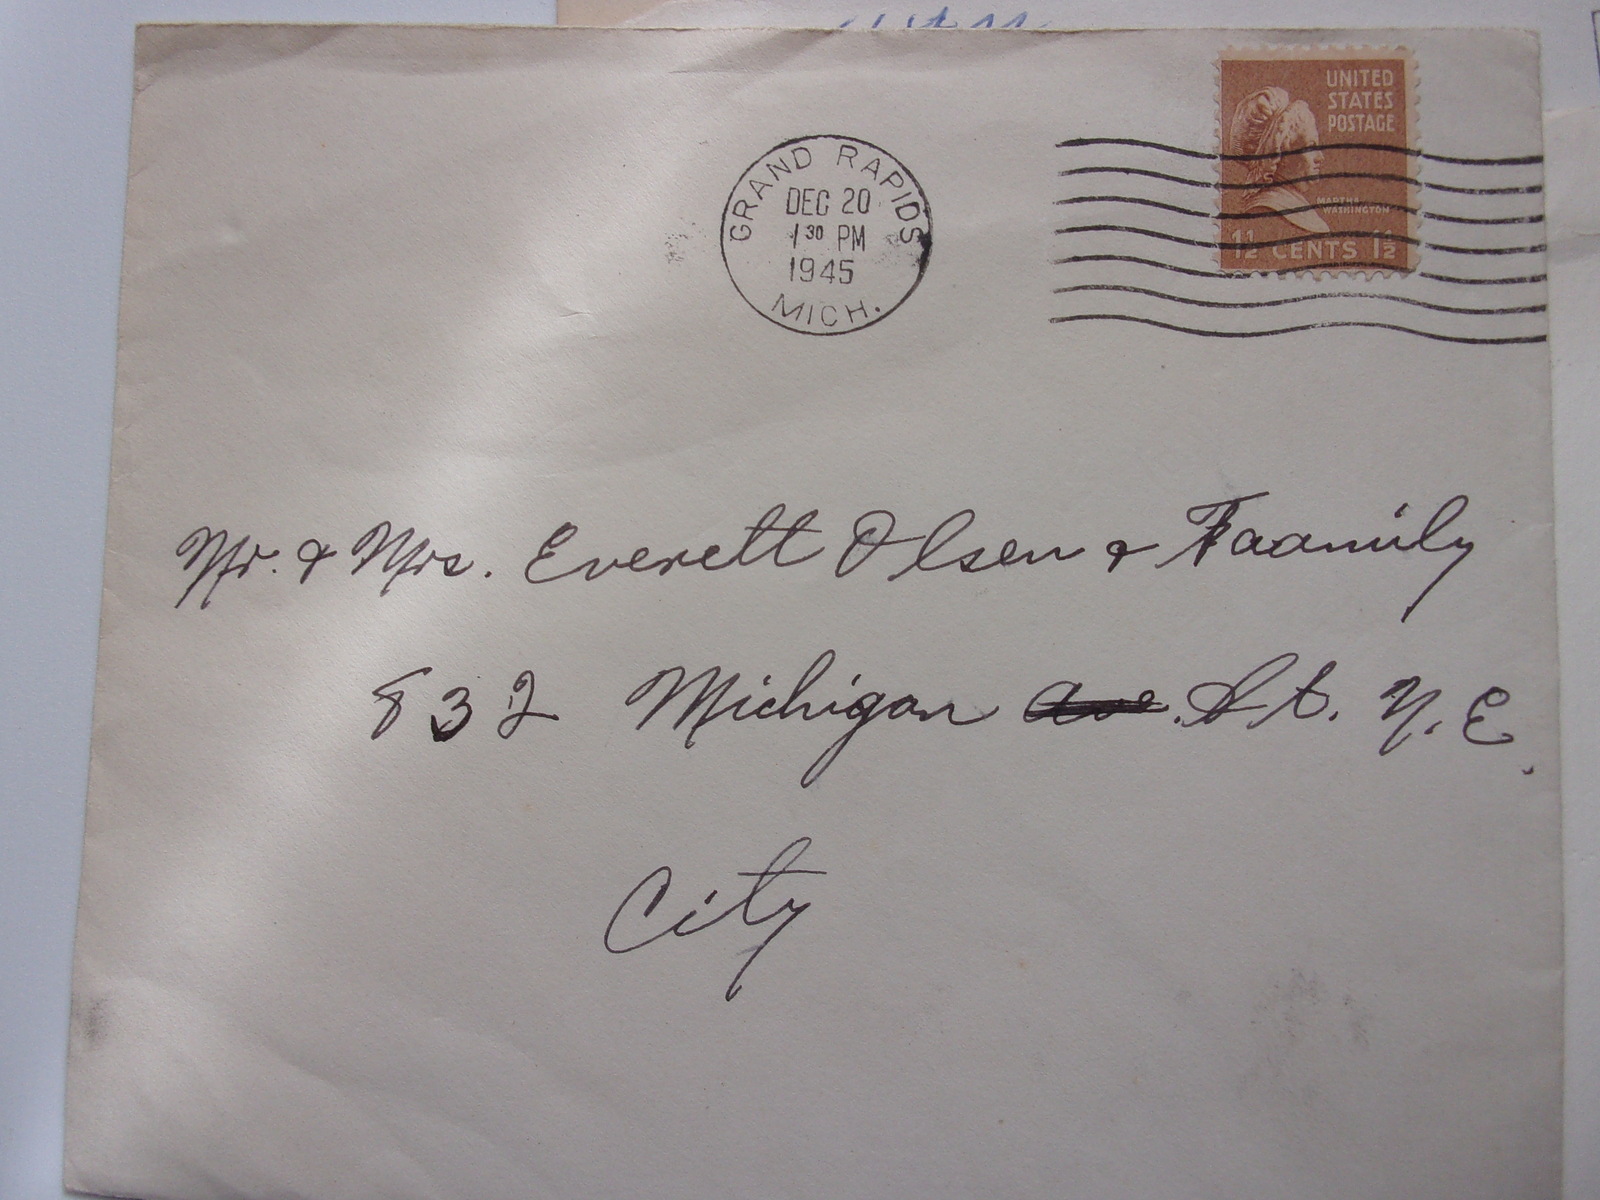 UNITED
STATES
POSTAGE
MARTHA
WASHINGTON
1½ CENTS 1½
GRAND RAPIDS
DEC 20
1 30 PM
1945
MICH.
Mr. & Mrs. Everett Olsen & Faamily
832 Michigan Ave. St. N.E.
City